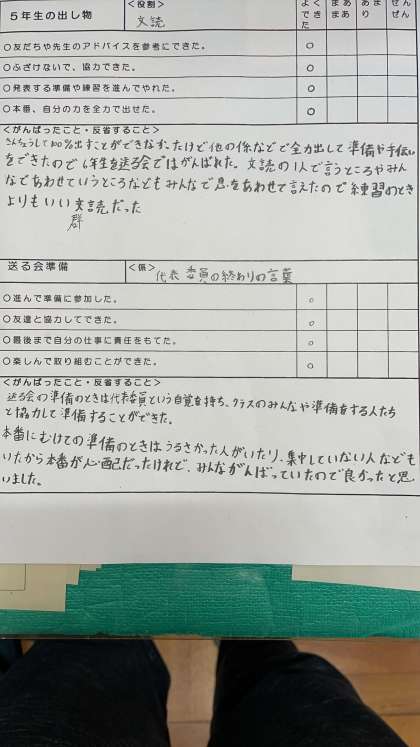 ５年生の出し物 ＜役割＞ 文読 よくできた まあまあ あまり ぜんぜん
○友だちや先生のアドバイスを参考にできた。 ○
○ふざけないで、協力できた。 ○
○発表する準備や練習を進んでやれた。 ○
○本番、自分の力を全力で出せた。 ○
＜がんばったこと・反省すること＞
きんちょうして100%出すことができなかったけど他の係などで全力出して準備や手伝い
をできたので6年生を送る会ではがんばれた。文読の1人で言うところやみん
なであわせていうところなどもみんなで息をあわせて言えたので練習のとき
よりもいい文読だった
群
送る会準備 ＜係＞ 代表委員の終わりの言葉
○進んで準備に参加した。 ○
○友達と協力してできた。 ○
○最後まで自分の仕事に責任をもてた。 ○
○楽しんで取り組むことができた。 ○
＜がんばったこと・反省すること＞
送る会の準備のときは代表委員という自覚を持ち、クラスのみんなや準備をする人たち
と協力して準備することができた。
本番にむけての準備のときはうるさかった人がいたり、集中していない人なども
いたから本番が心配だったけれど、みんながんばっていたので良かったと思
いました。